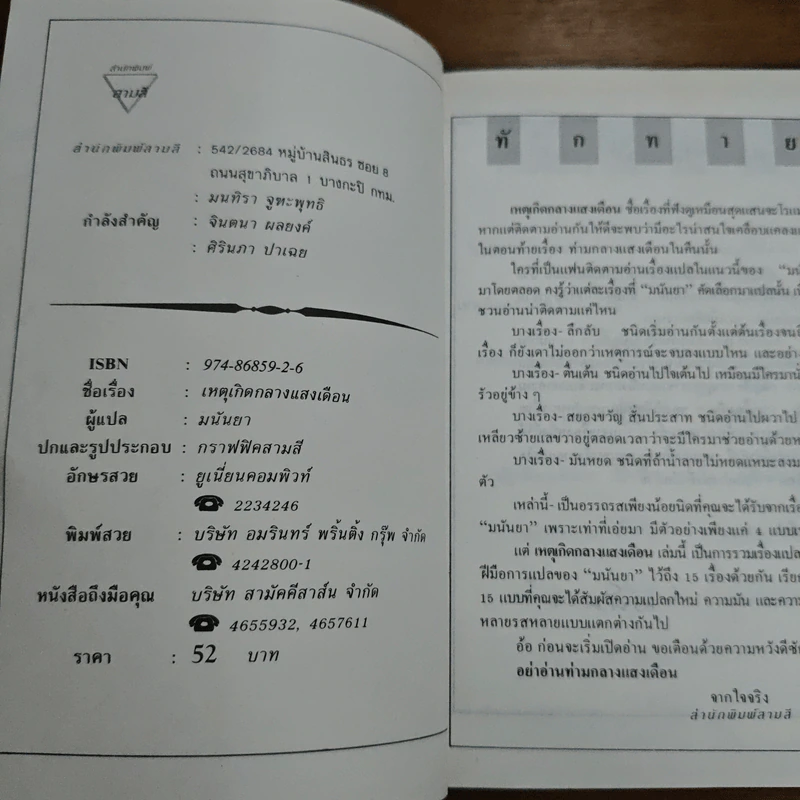 สำนักพิมพ์
สามสี
สำนักพิมพ์สามสี : 542/2684 หมู่บ้านสินธร ซอย 8
ถนนสุขาภิบาล 1 บางกะปิ กทม.
: มนทิรา จูฑะพุทธิ
กำลังสำคัญ : จินตนา ผลยงค์
: ศิรินภา ปาเฉย
ISBN : 974-86859-2-6
ชื่อเรื่อง : เหตุเกิดกลางแสงเดือน
ผู้แปล : มนันยา
ปกและรูปประกอบ : กราฟฟิคสามสี
อักษรสวย : ยูเนี่ยนคอมพิวท์
☎ 2234246
พิมพ์สวย : บริษัท อมรินทร์ พริ้นติ้ง กรุ๊พ จำกัด
☎ 4242800-1
หนังสือถึงมือคุณ บริษัท สามัคคีสาส์น จำกัด
☎ 4655932, 4657611
ราคา : 52 บาท
ทั ก ท า ย
เหตุเกิดกลางแสงเดือน ชื่อเรื่องที่ฟังดูเหมือนสุดแสนจะโรแม
หากแต่ติดตามอ่านกันให้ดีจะพบว่ามีอะไรน่าสนใจเคลือบแคลง
ในตอนท้ายเรื่อง ท่ามกลางแสงเดือนในคืนนั้น
ใครที่เป็นแฟนติดตามอ่านเรื่องแปลในแนวนี้ของ “มนั
มาโดยตลอด คงรู้ว่าแต่ละเรื่องที่ “มนันยา” คัดเลือกมาแปลนั้น
ชวนอ่านน่าติดตามแค่ไหน
บางเรื่อง- ลึกลับ ชนิดเริ่มอ่านกันตั้งแต่ต้นเรื่องจน
เรื่อง ก็ยังเดาไม่ออกว่าเหตุการณ์จะจบลงแบบไหน และอย่าง
บางเรื่อง- ตื่นเต้น ชนิดอ่านไปใจเต้นไป เหมือนมีใครมา
รัวอยู่ข้าง ๆ
บางเรื่อง- สยองขวัญ สั่นประสาท ชนิดอ่านไปผวาไป
เหลียวซ้ายแลขวาอยู่ตลอดเวลาว่าจะมีใครมาช่วยอ่านด้วย
บางเรื่อง- มันหยด ชนิดที่ถ้าน้ำลายไม่หยดแหมะลงม
ตัว
เหล่านี้- เป็นอรรถรสเพียงน้อยนิดที่คุณจะได้รับจากเรื่อ
“มนันยา” เพราะเท่าที่เอ่ยมา มีตัวอย่างเพียงแค่ 4 แบบ
แต่ เหตุเกิดกลางแสงเดือน เล่มนี้ เป็นการรวมเรื่องแปล
ฝีมือการแปลของ “มนันยา” ไว้ถึง 15 เรื่องด้วยกัน เรีย
15 แบบที่คุณจะได้สัมผัสความแปลกใหม่ ความมัน และควา
หลายรสหลายแบบแตกต่างกันไป
อ้อ ก่อนจะเริ่มเปิดอ่าน ขอเตือนด้วยความหวังดีซัก
อย่าอ่านท่ามกลางแสงเดือน
จากใจจริง
สำนักพิมพ์สามสี